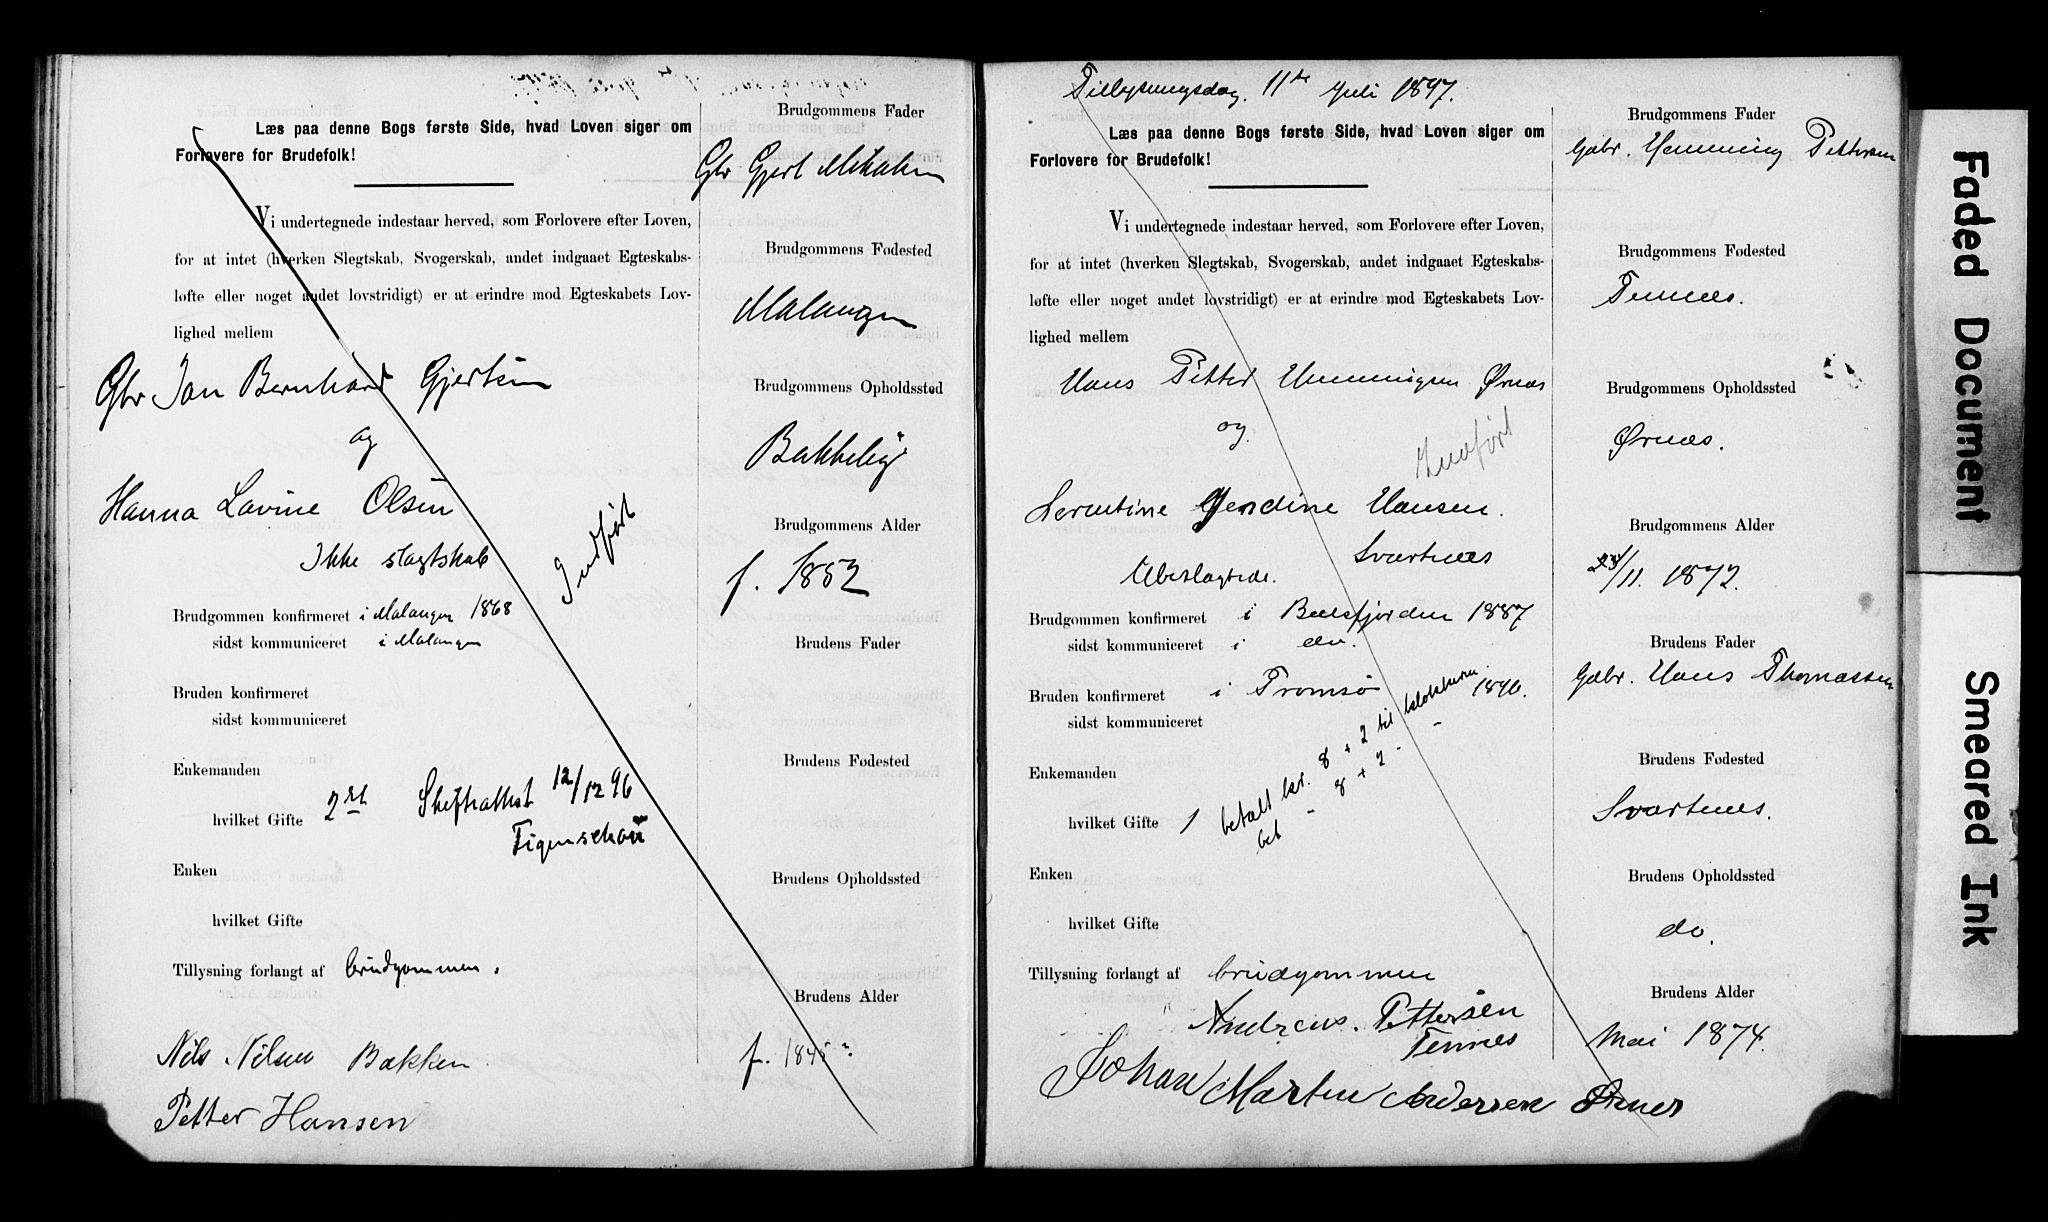 Læs paa denne Bogs første Side, hvad Loven siger om
Forlovere for Brudefolk!
Vi undertegnede indestaar herved, som Forlovere efter Loven,
for at intet (hverken Slegtskab, Svogerskab, andet indgaaet Egteskabs-
løfte eller noget andet lovstridigt) er at erindre mod Egteskabets Lov-
lighed mellem
Gbr Jan Bernhard Gjertsen
og
Hanna Lovine Olsen
Ikke slagtskab
Indført
Brudgommen konfirmeret i Malangen 1868
sidst kommuniceret i Malangen
Bruden konfirmeret
sidst kommuniceret
Enkemanden
hvilket Gifte 2det Skifteattest 12/12 96
Figenschou
Enken
hvilket Gifte
Tillysning forlangt af brudgommen.
Nils Nilsen Bakken
Petter Hansen
Brudgommens Fader
Gbr Gjert Mikalsen
Brudgommens Fødested
Malangen
Brudgommens Opholdssted
Bakkeliø
Brudgommens Alder
f. 1852
Brudens Fader
Brudens Fødested
Brudens Opholdssted
Brudens Alder
f. 1845
Tillysningsdag. 11te Juli 1897.
Læs paa denne Bogs første Side, hvad Loven siger om
Forlovere for Brudefolk!
Vi undertegnede indestaar herved, som Forlovere efter Loven,
for at intet (hverken Slegtskab, Svogerskab, andet indgaaet Egteskabs-
løfte eller noget andet lovstridigt) er at erindre mod Egteskabets Lov-
lighed mellem
Hans Petter Hemmingsen Ørnæs
og
Indført
Lerentine Gerdine Hansen.
Svartnæs
Ubeslægtede.
Brudgommen konfirmeret i Balsfjorden 1887
sidst kommuniceret i do.
Bruden konfirmeret i Tromsø 1890.
sidst kommuniceret
Enkemanden
hvilket Gifte 1
betalt kr. 8 + 2 til klokkeren
bet " 8 + 2 - -
Enken
hvilket Gifte
Tillysning forlangt af brudgommen
Andreas. Pettersen
Tennes
Johan Martin Andersen Ørnes
Brudgommens Fader
Gabr. Hemming Pettersen
Brudgommens Fødested
Tennæs.
Brudgommens Opholdssted
Ørnæs.
Brudgommens Alder
/11. 1872.
Brudens Fader
Gabr. Hans Thomassen
Brudens Fødested
Svartnæs.
Brudens Opholdssted
do.
Brudens Alder
Mai 1874.
Faded Document
Smeared Ink